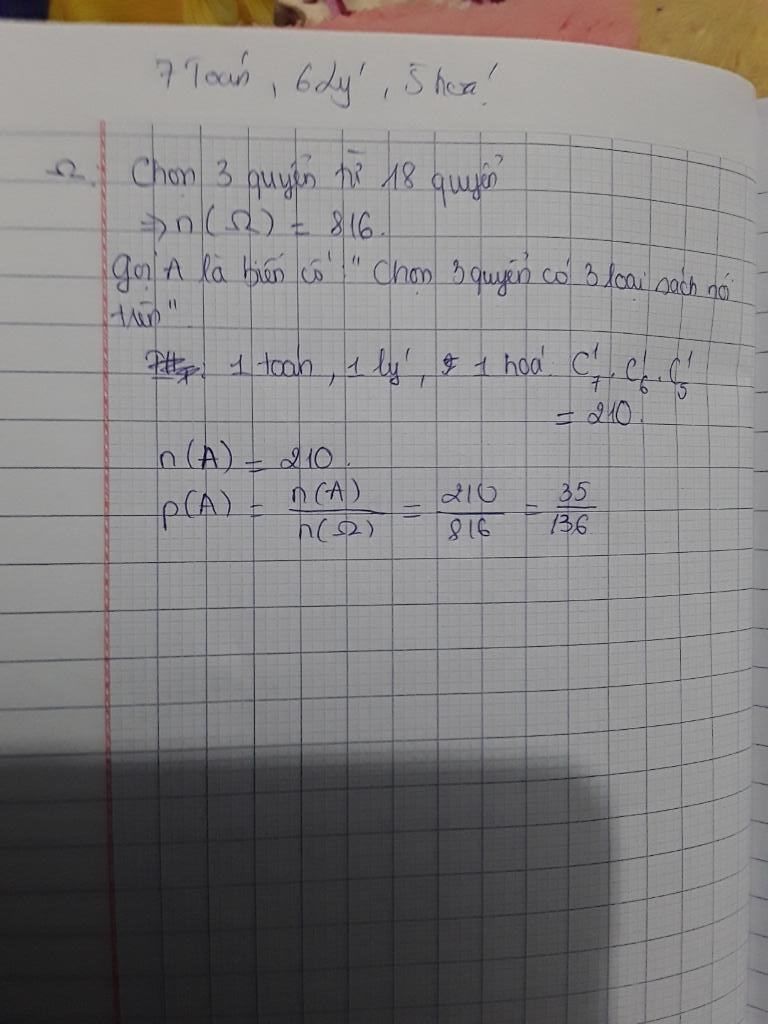 7 Toán, 6 Lý, 5 hoá
Ω. Chọn 3 quyển từ 18 quyển
⇒ n(Ω) = 816.
Gọi A là biến cố " Chọn 3 quyển có 3 loại sách nói
trên"
1 toán, 1 lý, 1 hoá. C¹₇. C¹₆. C¹₅
= 210.
n(A) = 210.
p(A) = n(A)/n(Ω) = 210/816 = 35/136